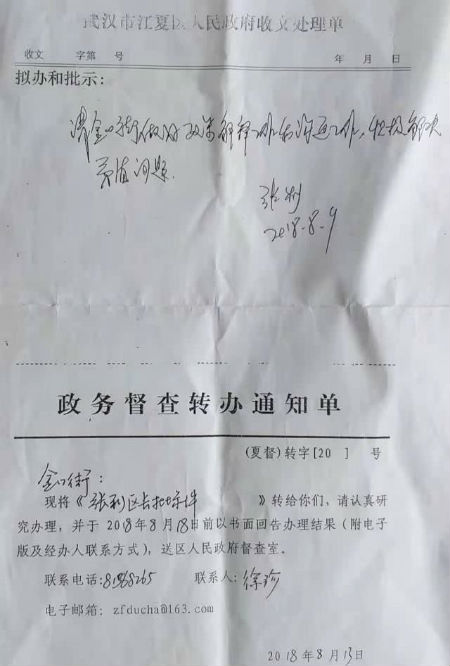 武汉市江夏区人民政府收文处理单
收文 字第 号 年 月 日
拟办和批示:
请金口街做好政策解释工作和沟通工作，积极解决
矛盾问题.
张利
2018-8-9
政务督查转办通知单
(夏督)转字[20 ] 号
金口街:
现将《张利区长批示件 》转给你们，请认真研
究办理，并于2018年8月18日前以书面回告办理结果（附电子
版及经办人联系方式），送区人民政府督查室。
联系电话:81968265 联系人:徐珍
电子邮箱: zfducha@163.com
2018年8月13日